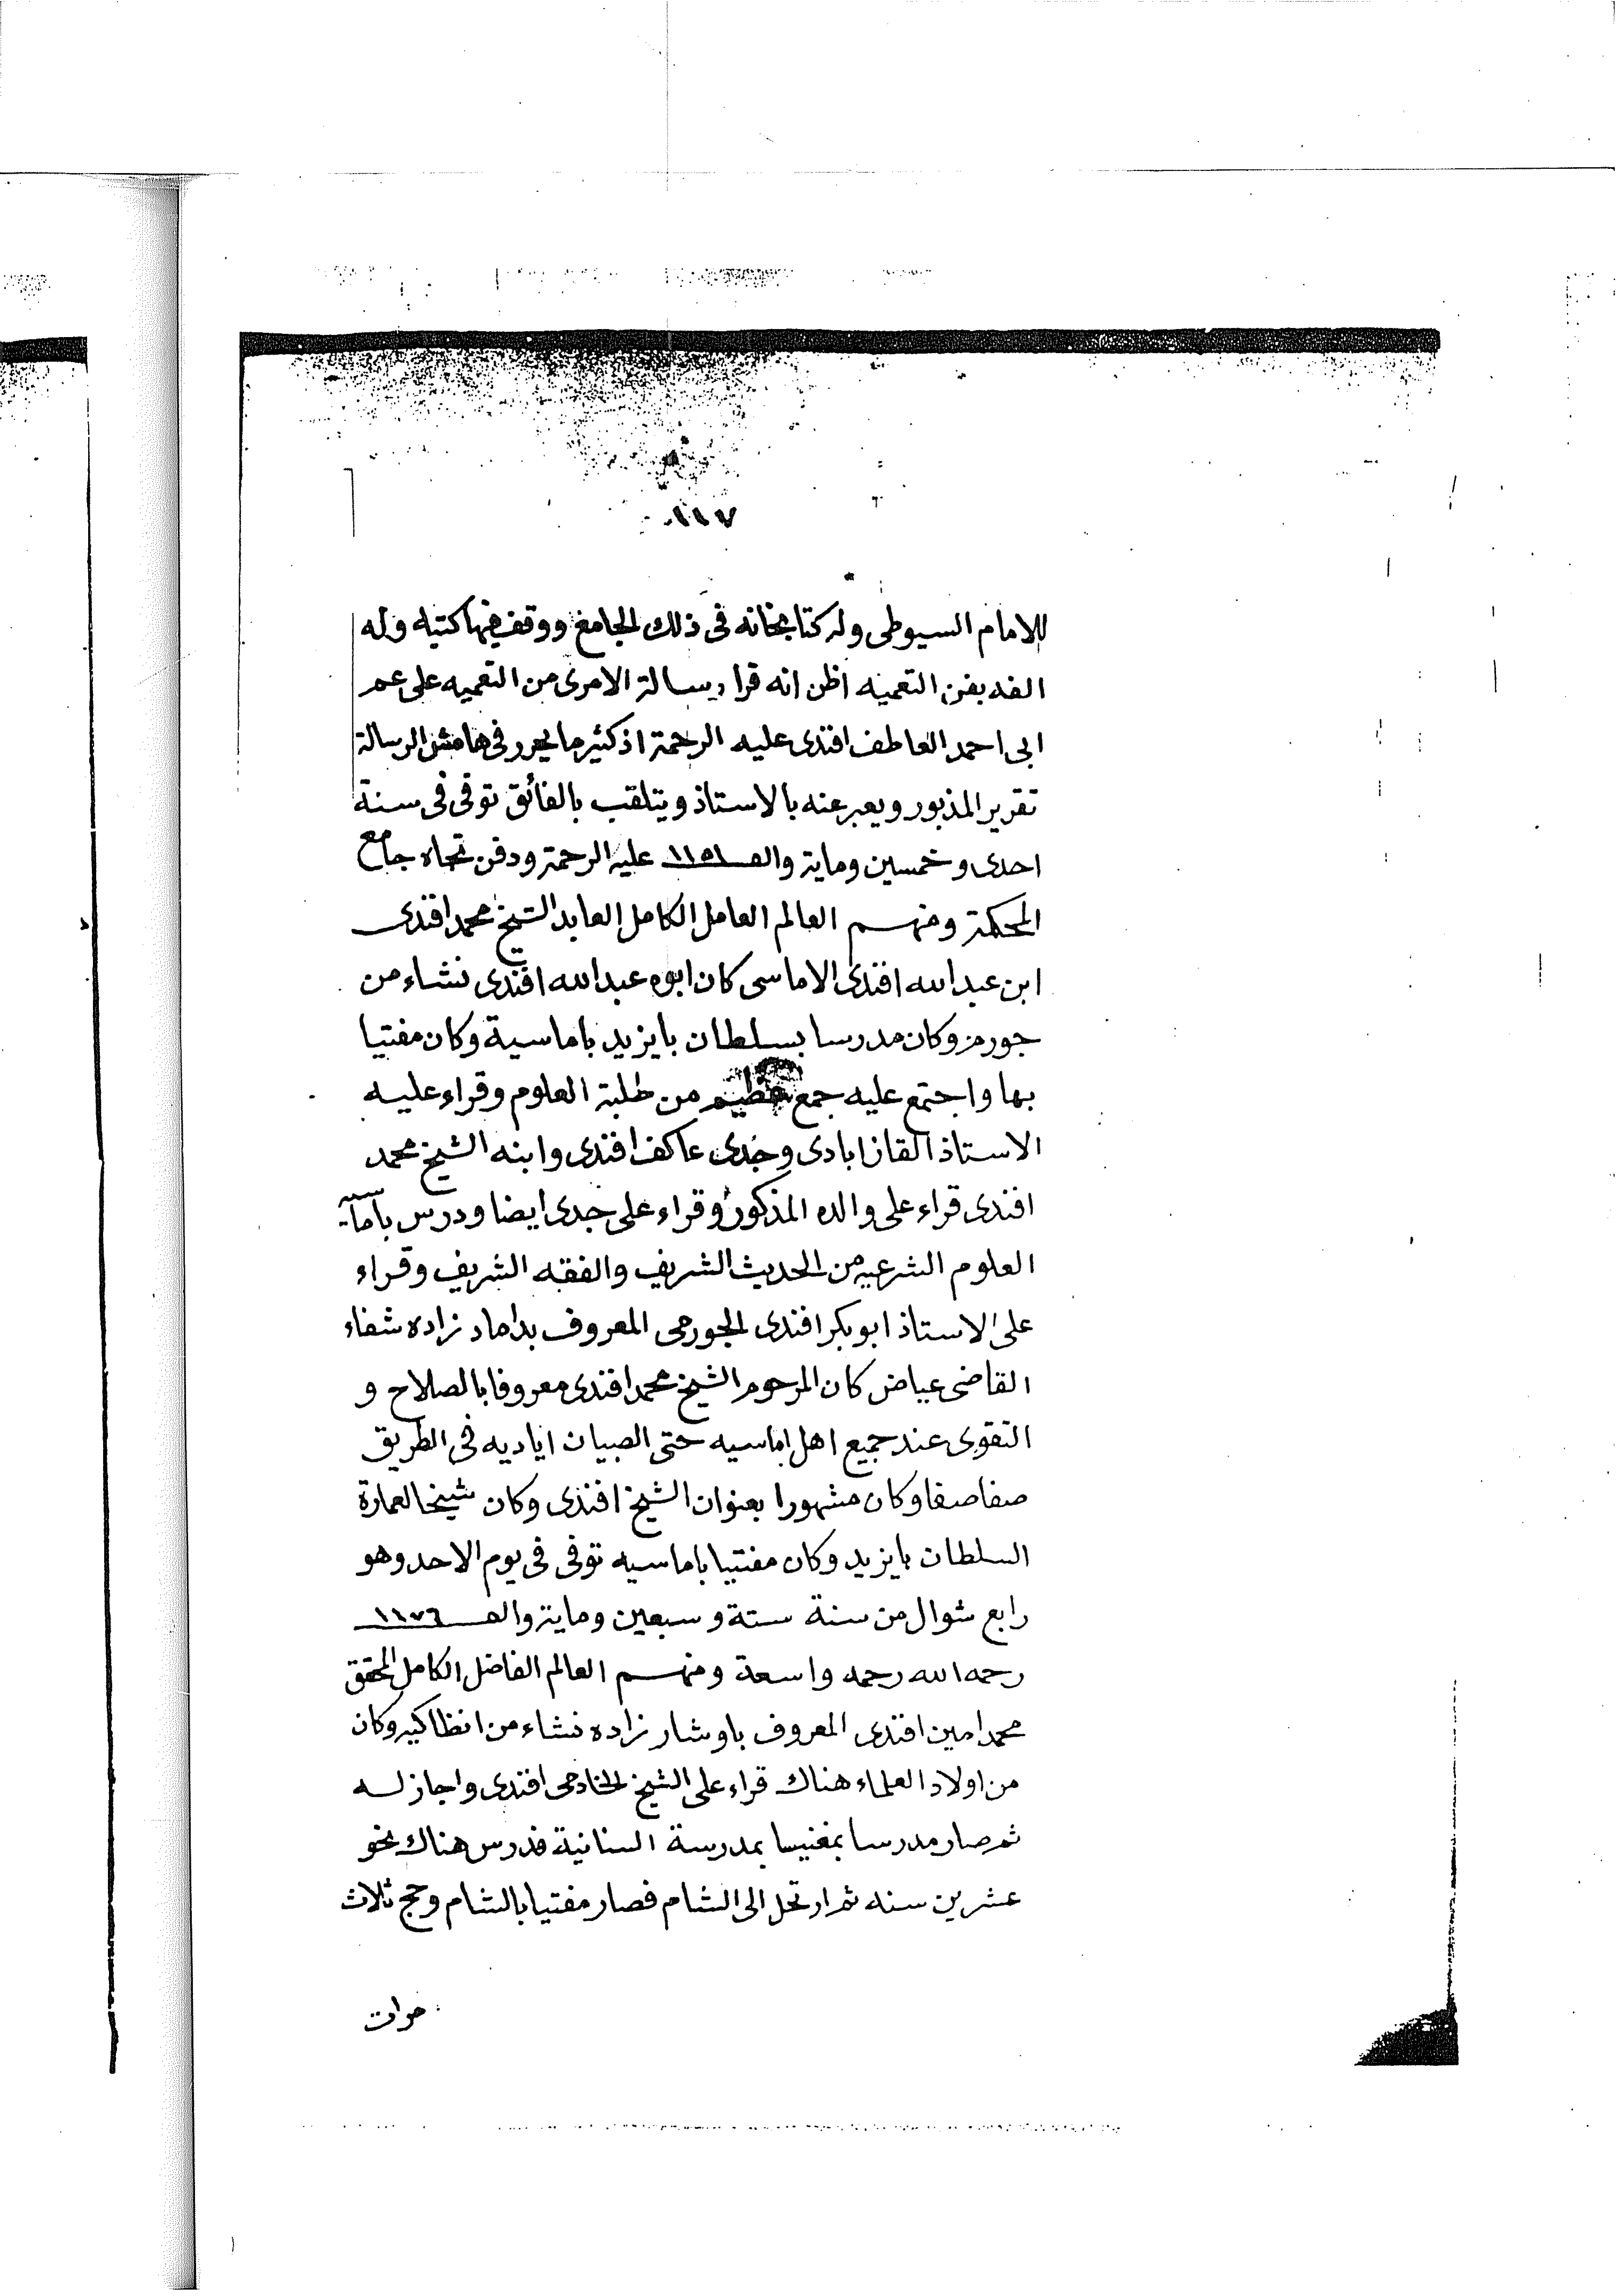 ١١٧
للامام السيوطى وله كتابخانه فى ذلك الجامع ووقف فيها كتبه وله
الفه بفن التعميه اظن انه قرا رسالة الامرى من التعميه على عم
ابى احمد العاطف افندى عليه الرحمة اذ كثير ما يحرر فى هامش الرسالة
تقرير المذبور ويعبر عنه بالاستاذ ويتلقب بالفائق توفى فى سنة
احدى وخمسين وماية والف ١١٥١ عليه الرحمة ودفن تجاه جامع
المحكمة ومنهم العالم العامل الكامل العابد الشيخ محمد افندى
ابن عبد الله افندى الاماسى كان ابوه عبد الله افندى نشاء من
جورم وكان مدرسا بسلطان بايزيد باماسية وكان مفتيا
بها واجتمع عليه جمع عظيم من طلبة العلوم وقراء عليه
الاستاذ القازابادى وجدى عاكف افندى وابنه الشيخ محمد
افندى قراء على والده المذكور وقراء على جدى ايضا ودرس باماسية
العلوم الشرعيه من الحديث الشريف والفقه الشريف وقراء
على الاستاذ ابوبكر افندى الجورمى المعروف بداماد زاده شفاء
القاضى عياض كان المرحوم الشيخ محمد افندى معروفا بالصلاح و
التقوى عند جميع اهل اماسيه حتى الصبيان اياديه فى الطريق
صفا صفا وكان مشهورا بعنوان الشيخ افندى وكان شيخا لعمارة
السلطان بايزيد وكان مفتيا باماسيه توفى فى يوم الاحد وهو
رابع شوال من سنة ستة وسبعين وماية والف ١١٧٦
رحمه الله رحمه واسعة ومنهم العالم الفاضل الكامل المحقق
محمد امين افندى المعروف باوشار زاده نشاء من انطاكيه وكان
من اولاد العلماء هناك قراء على الشيخ الخادمى افندى واجاز له
ثم صار مدرسا بمغنيسا بمدرسة السنانية فدرس هناك نحو
عشرين سنه ثم ارتحل الى الشام فصار مفتيا بالشام وحج ثلاث
مرات